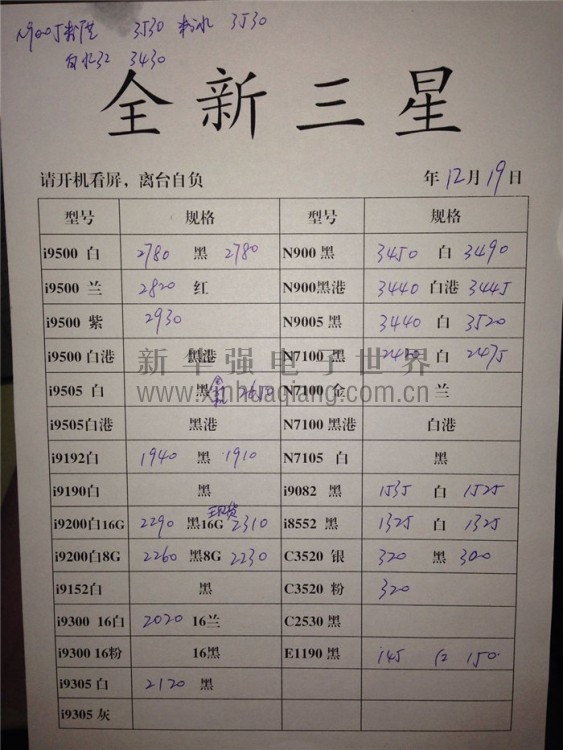 3530 3530
白水32 3430
全新三星
请开机看屏，离台自负 年12月19日
型号 规格 型号 规格
i9500 白 2780 黑 2780 N900 黑 3450 白 3490
i9500 兰 2820 红 N900黑港 3440 白港 3445
i9500 紫 2930 N9005 黑 3440 白 3520
i9500白港 黑港 N7100 黑 白 2475
新华强电子世界
i9505 白 黑 N7100 金 兰
www.xinhuaqiang.com.cn
i9505白港 黑港 N7100黑港 白港
i9192白 1940 黑 1910 N7105 白 黑
i9190白 黑 i9082 黑 1535 白 1525
i9200白16G 2290 黑16G 2310 i8552 黑 1325 白 1325
i9200白8G 2260 黑8G 2230 C3520 银 320 黑 300
i9152白 黑 C3520 粉 320
i9300 16白 2020 16兰 C2530 黑
i9300 16粉 16黑 E1190 黑 145 150
i9305 白 2120 黑
i9305 灰